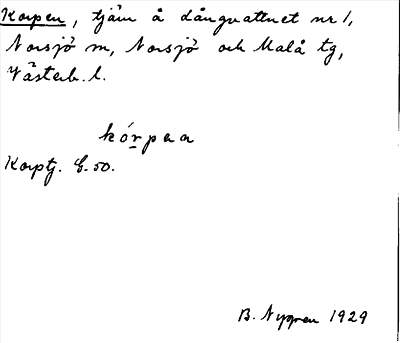 Korpen, tjärn å Långvattnet nr 1,
Norsjö sn, Norsjö och Malå tg,
Västerb. l.
kórpan
Korptj. E. 50.
B. Nygren 1929